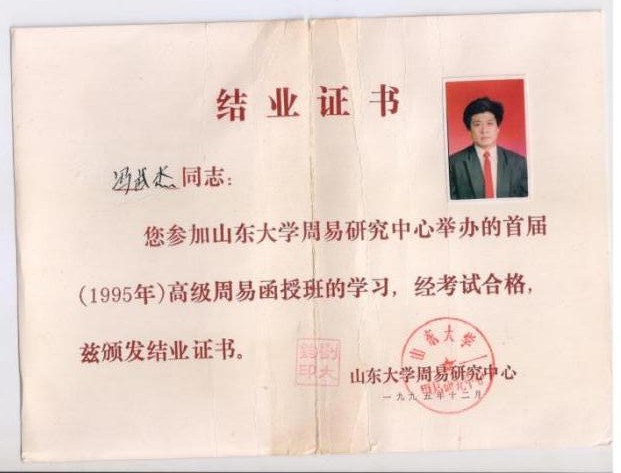 结业证书
冯武杰同志：
您参加山东大学周易研究中心举办的首届
(1995年)高级周易函授班的学习，经考试合格，
兹颁发结业证书。
刘大钧印
山东大学
山东大学周易研究中心
一九九五年十二月